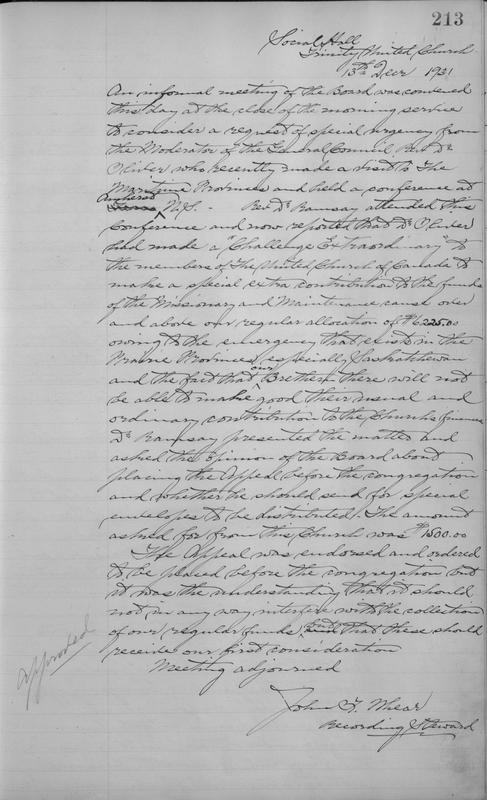 213
Social Hall
Trinity United Church
13th Decr 1931
An informal meeting of the Board was convened
this day at the close of the morning service
to consider a request of special urgency from
the Moderator of the General Council Rev Dr
Oliver who recently made a visit to The
Maritime Provinces and held a conference at
Amherst
N.S. - Rev Dr Ramsay attended this
Conference and now reported that Dr Oliver
had made a "Challenge Extraordinary" to
the members of The United Church of Canada to
make a special extra contribution to the funds
of the Missionary and Maintenance cause over
and above our regular allocation of $6225.00
owing to the emergency that exists in the
Prairie Provinces, especially Saskatchewan
and the fact that our Brethern there will not
be able to make good their usual and
ordinary contribution to the Churchs finances
Dr Ramsay presented the matter and
asked the Opinion of the Board about
placing the Appeal before the congregation
and whether he should send for special
envelopes to be distributed. The amount
asked for from this Church was $1500.00
The Appeal was endorsed and ordered
to be placed before the congregation but
it was the understanding that it should
not in any way interfere with the collection
of our regular funds, but that these should
receive our first consideration
Meeting adjourned
approved
John F. Whear
Recording Steward